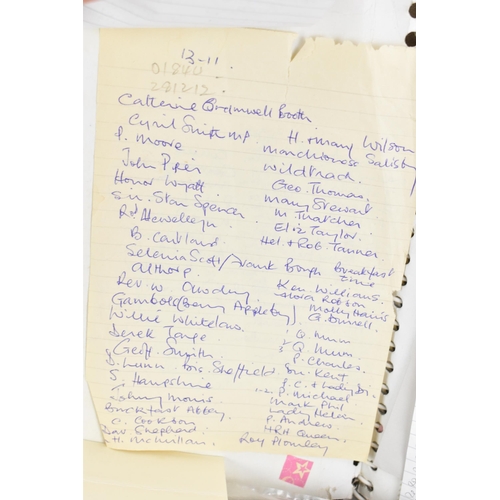 13-11.
01844
281212
Catherine Bramwell Booth
Cyril Smith MP H. & Mary Wilson
P. Moore Marchioness Salisbury
John Piper Wildtrack
Honor Wyatt Geo. Thomas
S.W. Stan Spencer Mary Stewart
Rd Llewellyn M Thatcher
B. Cartland Eliz Taylor
Hel & Rob. Tanner
Selenia Scott / Frank Bough Breakfast Time
Althorp Ken Williams
Rev. W Awdry Flora Robson
Gambols (Barry Appleby) Molly Harris
Willie Whitelaw G. Durrell
Derek Tangye Q Mum
Geoff. Smith Q Mum
D. Lunn Bis. Sheffield P. Charles
S. Hampshire Kent
Johnny Morris P. C. & Lady Di
Buckfast Abbey P. Michael
C. Cookson Mark Phil
Dav Shepherd Lady Helen
H. McMillan P. Andrew
HRH Queen
Roy Plomley